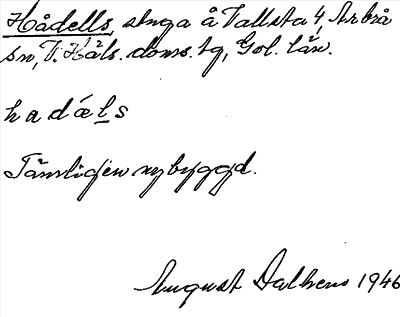 Hådells, stuga å Vallsta 4, Arbrå
sn, V. Häls. doms. tg, Gol. län.
hadæls
Tämligen nybyggd.
August Dalheno 1946